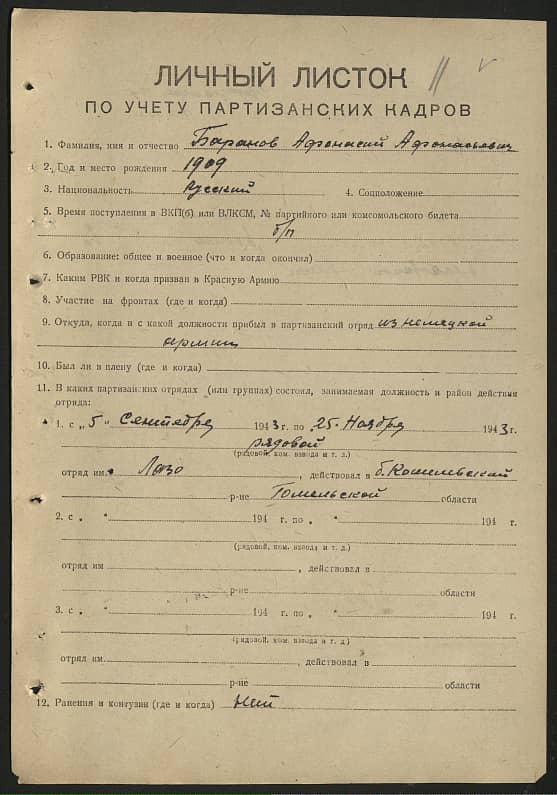 ЛИЧНЫЙ ЛИСТОК
ПО УЧЕТУ ПАРТИЗАНСКИХ КАДРОВ
1. Фамилия, имя и отчество Баранов Афонасий Афонасьевич
2. Год и место рождения 1909
3. Национальность Русский 4. Соцположение
5. Время поступления в ВКП(б) или ВЛКСМ, № партийного или комсомольского билета
б/п
6. Образование: общее и военное (что и когда окончил)
7. Каким РВК и когда призван в Красную Армию
8. Участие на фронтах (где и когда)
9. Откуда, когда и с какой должности прибыл в партизанский отряд из немецкой
армии
10. Был ли в плену (где и когда)
11. В каких партизанских отрядах (или группах) состоял, занимаемая должность и район действия
отряда:
1. с „5" Сентября 1943 г. по „25" Ноября 1943 г.
рядовой
(рядовой, ком. взвода и т. д.)
отряд им. Лазо, действовал в б. Кошелевский
р-не Гомельской области
2. с „ " 194 г. по „ " 194 г.
(рядовой, ком. взвода и т. д.)
отряд им, действовал в
р-не области
3. с „ " 194 г. по „ " 194 г.
(рядовой, ком. взвода и т. д.)
отряд им., действовал в
р-не области
12. Ранения и контузии (где и когда) Нет